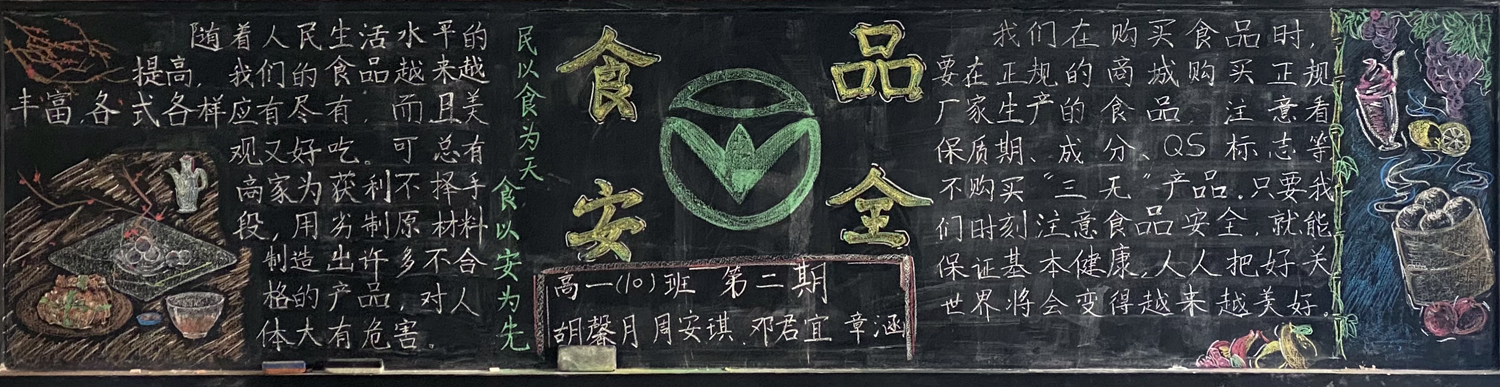 随着人民生活水平的
提高，我们的食品越来越
丰富，各式各样应有尽有，而且美
观又好吃。可总有
商家为获利不择手
段，用劣制原材料
制造出许多不合
格的产品，对人
体大有危害。
民以食为天
食以安为先
食品
安全
高一(10)班 第二期
胡馨月 周安琪.邓君宜 章涵
我们在购买食品时，
要在正规的商城购买正规
厂家生产的食品，注意看
保质期、成分、QS标志等
不购买“三无”产品.只要我
们时刻注意食品安全，就能
保证基本健康，人人把好关
世界将会变得越来越美好。